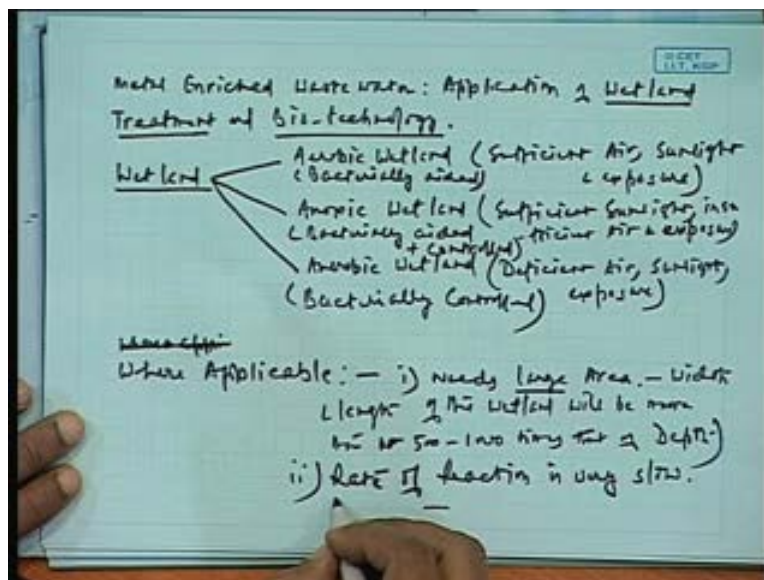 © CET
I.I.T. KGP
Metal Enriched Waste water: Application of Wetland
Treatment and Bio-technology.
Wetland
Aerobic Wetland (Sufficient Air, Sunlight
(Bacterially aided) & exposure)
Anoxic Wetland (Sufficient Sunlight, insu
(Bacterially aided + controlled) fficient Air & exposure)
Anaerobic Wetland (Deficient Air, Sunlight,
(Bacterially Controlled) exposure)
Where Applicable: — i) Needs large Area. — Width
& length of the wetland will be more
500-1000 times that of Depth)
ii) Rate of reaction is very slow.